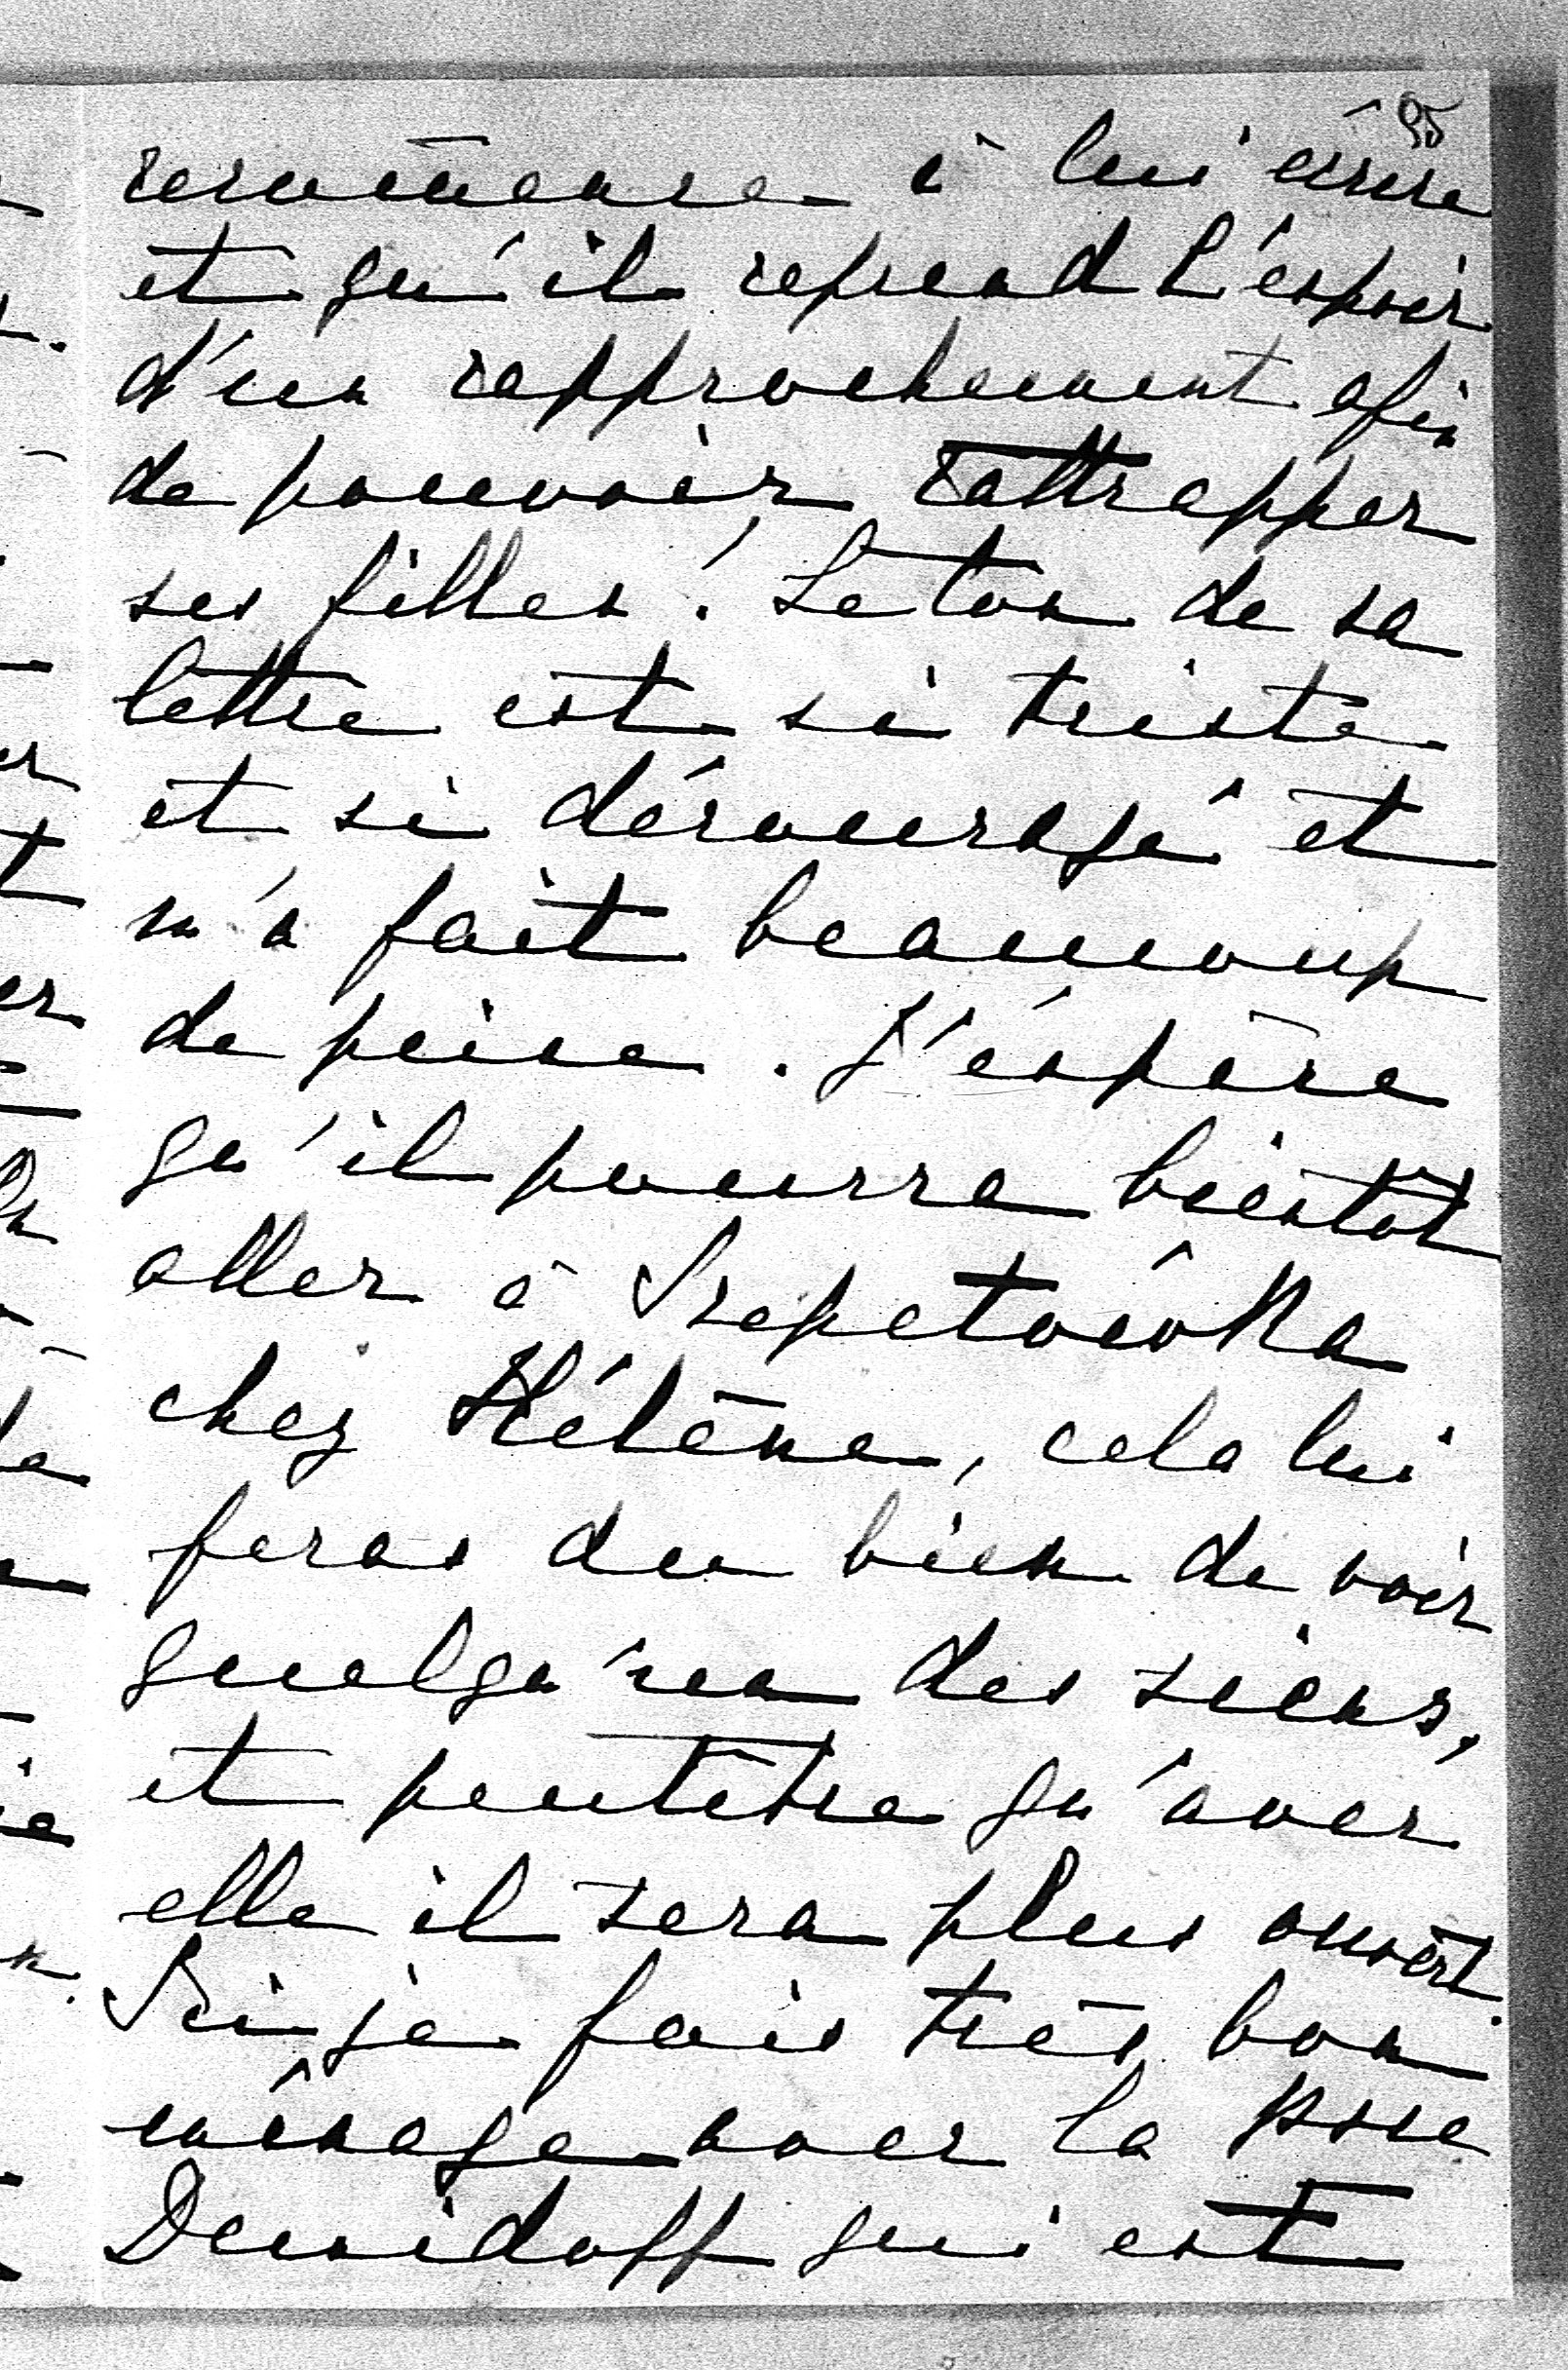 95
recommence à lui écrire
et qu'il reprend l'espoir
d'un rapprochement afin
de pouvoir rattrapper
ses filles! Le ton de sa
lettre est si triste
et si découragé et
m'a fait beaucoup
de peine. J'espère
qu'il pourra bientôt
aller à Szepetovka
chez Hélène, cela lui
feras du bien de voir
quelqu'un des siens,
et peutêtre qu'avec
elle il sera plus ouvert.
Ici je fais très bon
ménage avec la Psse
Demidoff qui est